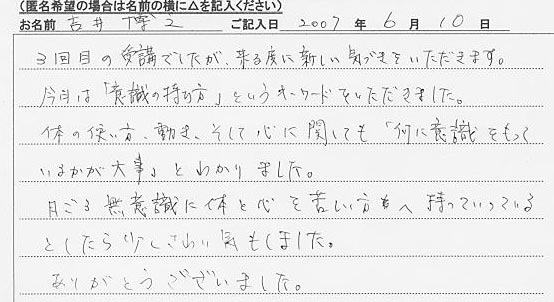 (匿名希望の場合は名前の横に△を記入ください)
お名前 吉井 博之 ご記入日 2007 年 6 月 10 日
3回目の受講でしたが、来る度に新しい気づきをいただきます。
今日は「意識の持ち方」というキーワードをいただきました。
体の使い方、動き、そして心に関しても「何に意識をもって
いるかが大事」とわかりました。
日ごろ無意識に体と心を苦しい方へ持っていっている
としたら少しこわい気もしました。
ありがとうございました。